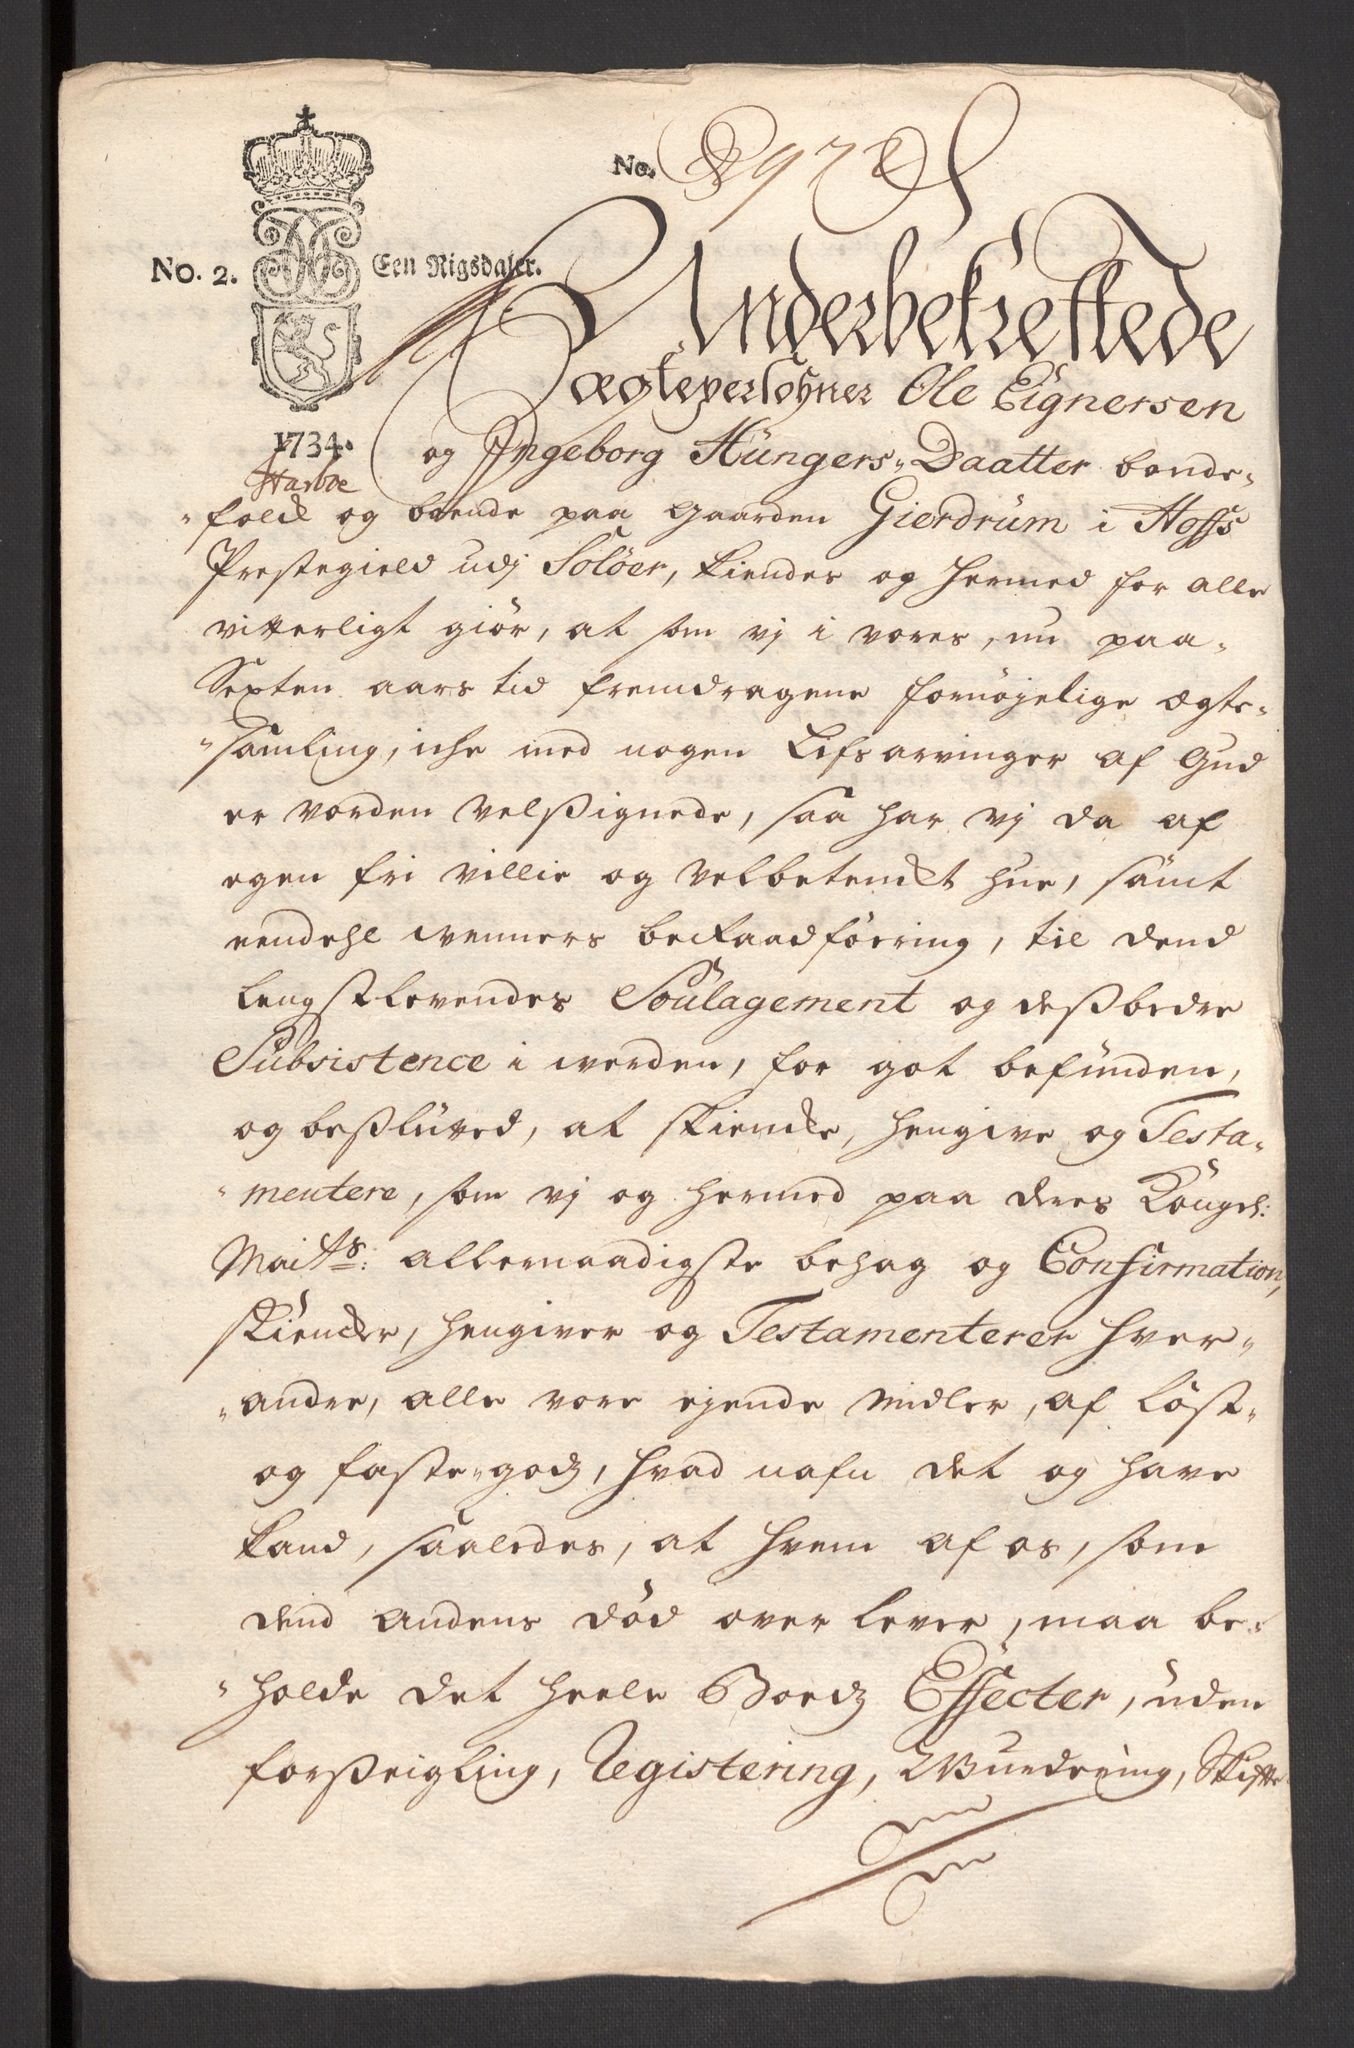 No. 2.
Een Rigsdaler.
No. 972
1734.
Underbekreftede
ægtepersohner Ole Eignersen
og Ingeborg Hüngers-Daatter bonde-
-folck og boende paa gaarden Gierdrüm i Hoffs
Prestegield udj Solöer, kiendes og hermed for alle
vitterligt giör, at som vj i vores, nu paa-
Sexten aars tid fremdragene fornøjelige ægte-
-samling, iche med nogen Lifs arvinger af Gud
er vorden velsignede, saa har vj da af
egen fri villie og velbetenckt hue, sampt
eendehl wenners beraadföring, til dend
lengstlevendes Soulagement og dessbedre
Subsistence i werden, for got befunden,
og beslutted, at skiencke, hengive og Testa-
-mentere, som vj og hermed paa deres Kongel:
Maits: allernaadigste behag og Confirmation,
skiencker, hengiver og Testamenterer hver-
-andre, alle vore ejende midler, af löst-
og faste-godz, hvad nafn det og have
kand, saaledes, at hvem af os, som
dend andens död over lever, maa be-
-holde det heele Boedz Effecter, uden
forseigling, Registering, Wurdering, Skifte